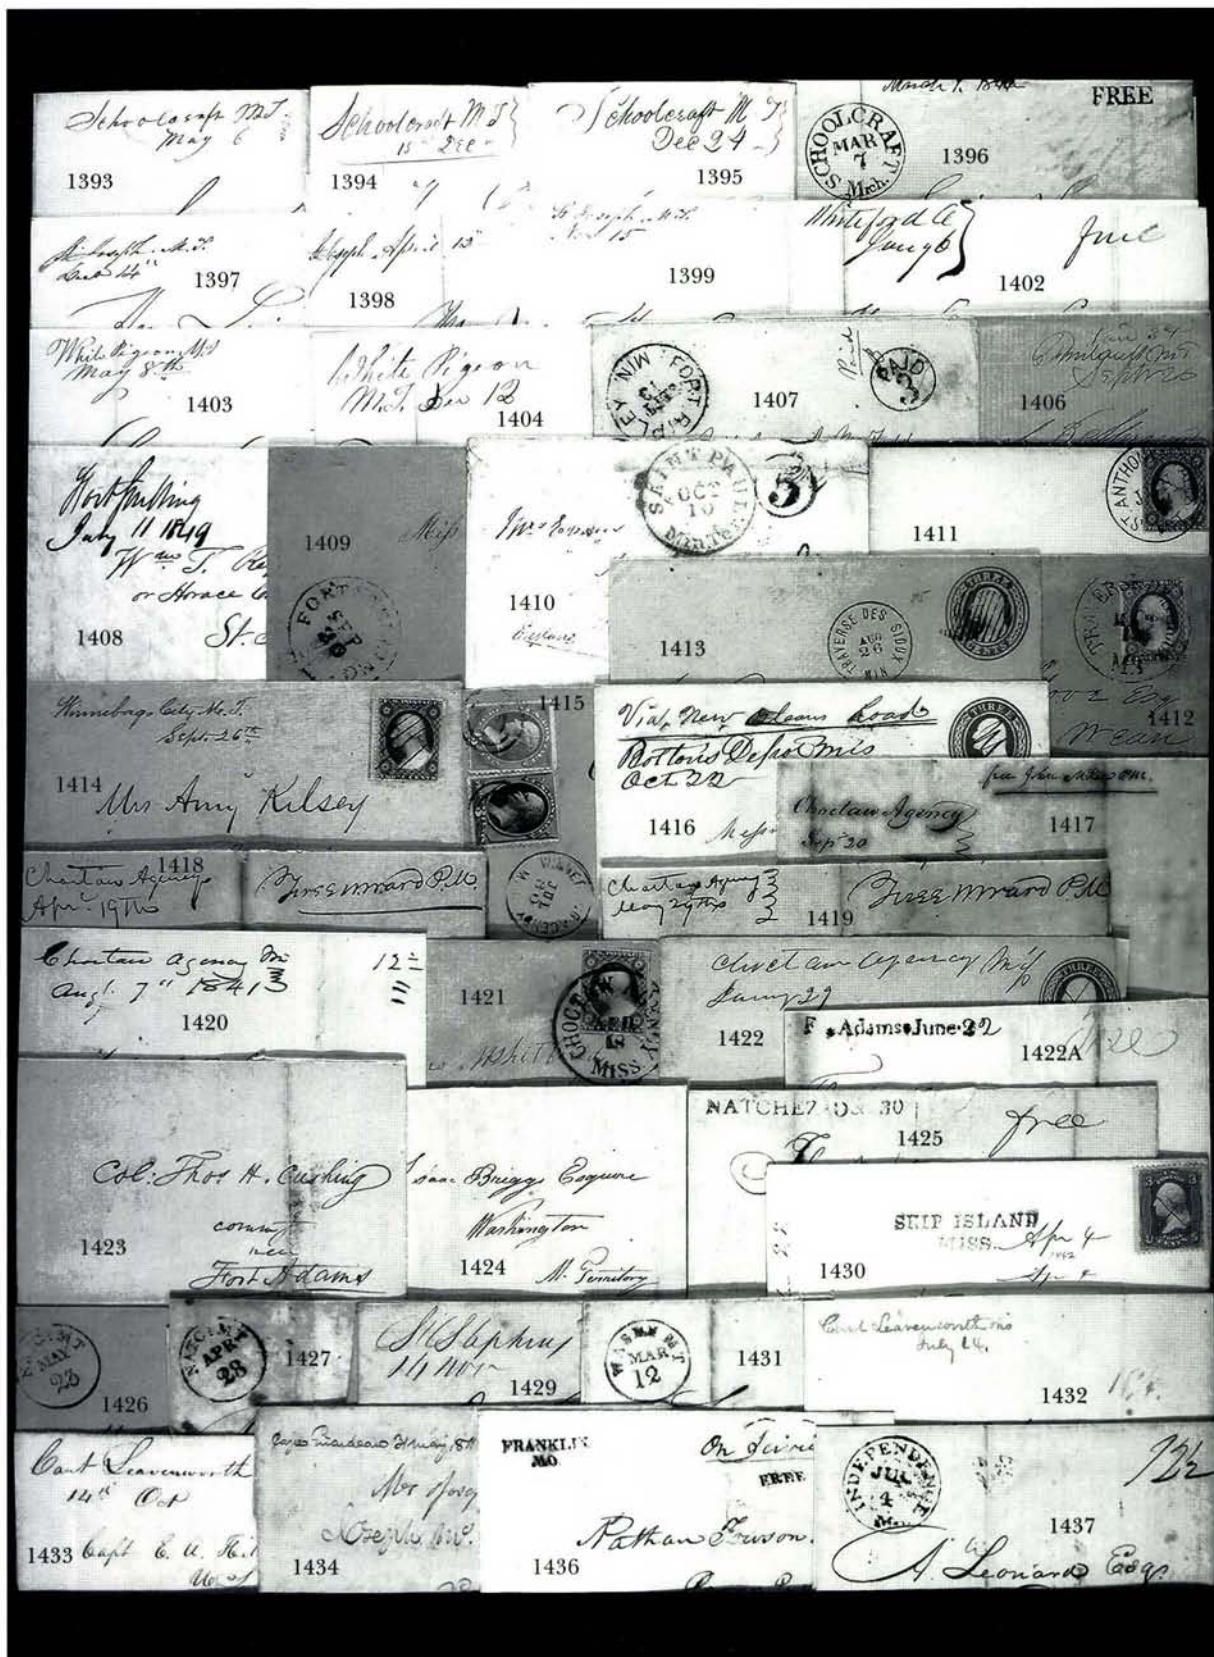 Schoolcraft M.T.
May 6
1393
Schoolcraft M T
15th Dec
1394
Schoolcraft M T
Dec 24
1395
March 7. 1844
FREE
SCHOOLCRAFT
MAR
7
Mich.
1396
St. Joseph M.T.
14th
1397
St Joseph April 15
1398
St Joseph M.T.
Nov 15
1399
Whiteford
1402
White Pigeon M.T
May 8th
1403
White Pigeon
M.T. Dec 12
1404
FORT RIPLEY MIN.
1407
Paid
PAID
3
Sept 20
1406
Fort Snelling
July 11 1849
Wm T.
or Horace
St.
1408
1409
Miss
FORT
SEP
Mrs
1410
England
SAINT PAUL
OCT
10
MIN. TER.
5
1411
ANTHONY
1413
TRAVERSE DES SIOUX
AUG
26
MIN
THREE
CENTS
TRAVERSE
Esq
1412
Winnebago City M.T.
Sept. 26th
1414
Mrs Amy Kelsey
1415
Via, New Orleans Road
Bottons Depot Mis
Oct 22
1416
Messr
THREE
free John
Choctaw Agency
Sep 20
1417
1418
Choctaw Agency
Apr. 19th
Free M Ward P.M.
JUL
AGENCY
Choctaw Agency
May 29th
1419
Free M Ward P.M
Choctaw Agency Mi
Augt. 7th 1841
12
1420
1421
CHOCTAW AGENCY
APR
18
MISS
Choctaw Agency Mis
Jany 29
1422
THREE
F. Adams June 22
1422A
free
Col: Thos H. Cushing
near
Fort Adams
1423
Isaac Briggs Esquire
Washington
M. Territory
1424
NATCHEZ D 30
1425
free
SHIP ISLAND
MISS.
Apr 4
1430
3
3
MAY
23
1426
NATCHEZ
APR
28
1427
St Stephens
14 Nov
1429
WASHN M T
MAR
12
1431
Cant Leavenworth mo
July 14.
1432
Cant Leavenworth
14th Oct
1433
Capt E. A.
Cape Girardeau
Mrs
Joseph
1434
FRANKLIN
MO.
FREE
Nathan Towson.
1436
INDEPENDENCE
JUL
4
Mo.
12½
1437
A. Leonard Esq.